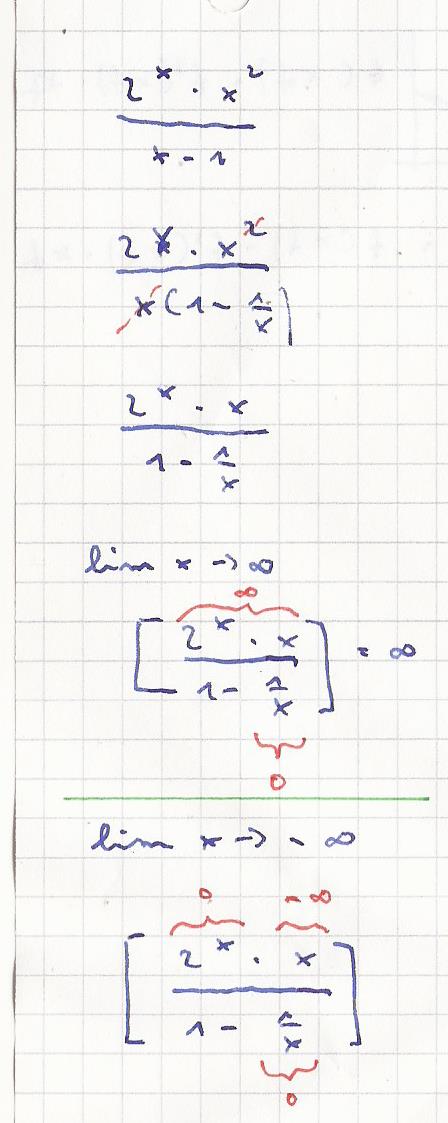 2^x · x^2
x - 1
2^x · x^2
x(1 - 1/x)
2^x · x
1 - 1/x
lim x → ∞
∞
[ 2^x · x
1 - 1/x ] = ∞
0
lim x → - ∞
0 - ∞
[ 2^x · x
1 - 1/x ]
0